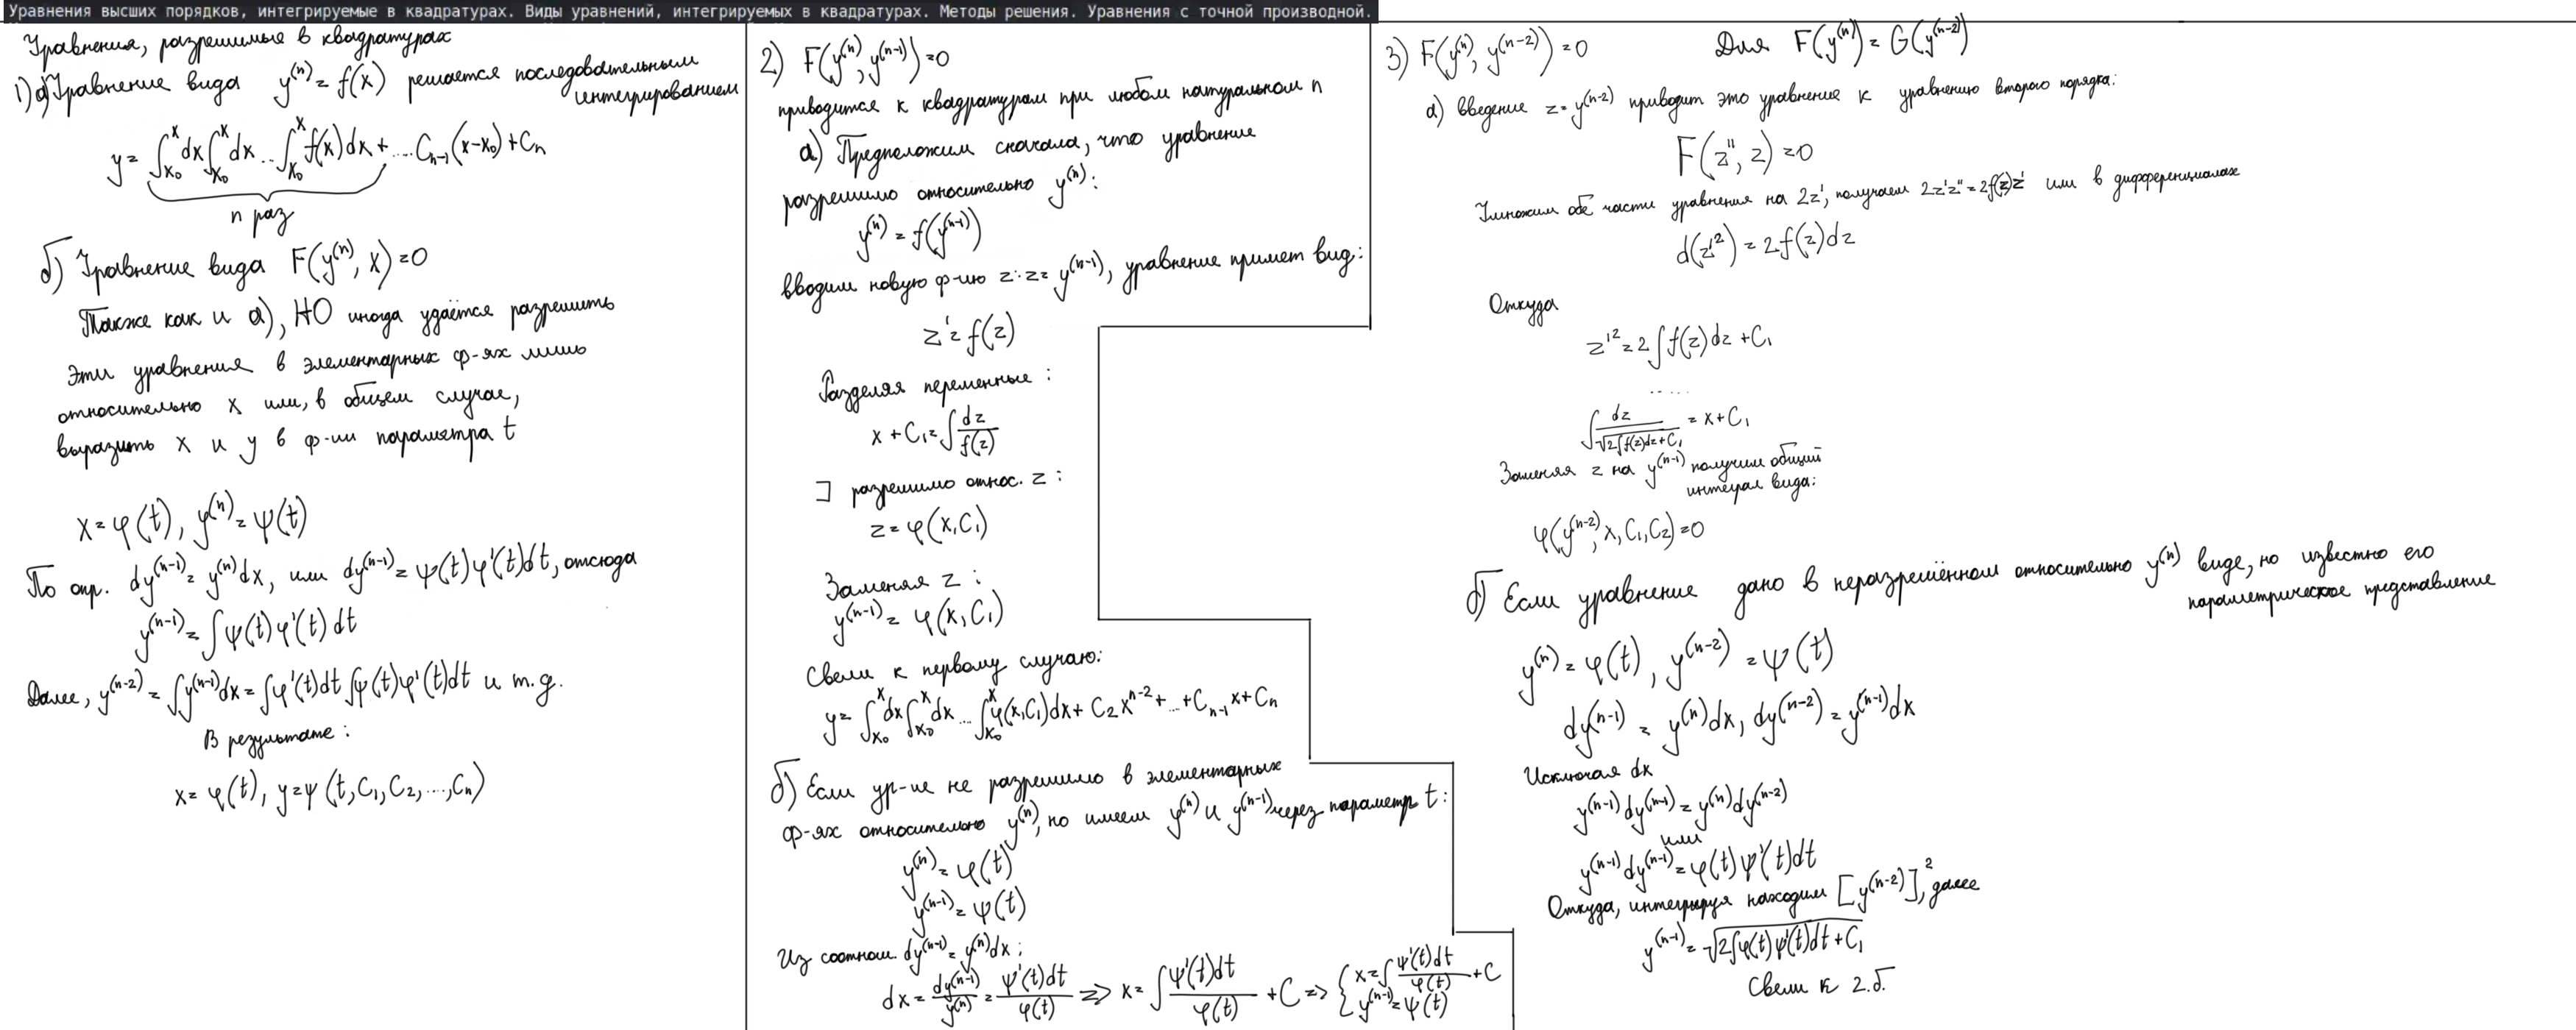 Уравнения высших порядков, интегрируемые в квадратурах. Виды уравнений, интегрируемых в квадратурах. Методы решения. Уравнения с точной производной.
Уравнения, разрешимые в квадратурах
1) а) Уравнение вида y^(n) = f(x) решается последовательным
интегрированием
y = ∫_{x₀}^{x} dx ∫_{x₀}^{x} dx ... ∫_{x₀}^{x} f(x)dx + ... C_{n-1}(x-x₀) + C_n
n раз
б) Уравнение вида F(y^(n), x) = 0
Также как и а), НО иногда удаётся разрешить
Эти уравнения в элементарных ф-ях лишь
относительно x или, в общем случае,
выразить x и y в ф-ии параметра t
x = φ(t), y^(n) = ψ(t)
По опр. dy^(n-1) = y^(n)dx, или dy^(n-1) = ψ(t)φ'(t)dt, отсюда
y^(n-1) = ∫ψ(t)φ'(t)dt
Далее, y^(n-2) = ∫y^(n-1)dx = ∫φ'(t)dt ∫ψ(t)φ'(t)dt и т.д.
В результате:
x = φ(t), y = ψ(t, C₁, C₂, ..., C_n)
2) F(y^(n), y^(n-1)) = 0
приводится к квадратурам при любом натуральном n
а) Предположим сначала, что уравнение
разрешимо относительно y^(n):
y^(n) = f(y^(n-1))
вводим новую ф-ию z: z = y^(n-1), уравнение примет вид:
z' = f(z)
Разделяя переменные:
x + C₁ = ∫ dz/f(z)
] разрешимо относ. z:
z = φ(x, C₁)
Заменяя z:
y^(n-1) = φ(x, C₁)
Свели к первому случаю:
y = ∫_{x₀}^{x} dx ∫_{x₀}^{x} dx ... ∫_{x₀}^{x} φ(x, C₁)dx + C₂x^{n-2} + ... + C_{n-1}x + C_n
б) Если ур-ие не разрешимо в элементарных
ф-ях относительно y^(n), но имеем y^(n) и y^(n-1) через параметр t:
y^(n) = φ(t)
y^(n-1) = ψ(t)
Из соотнош. dy^(n-1) = y^(n)dx:
dx = dy^(n-1)/y^(n) = ψ'(t)dt/φ(t) => x = ∫ ψ'(t)dt/φ(t) + C => { x = ∫ ψ'(t)dt/φ(t) + C
y^(n-1) = ψ(t)
3) F(y^(n), y^(n-2)) = 0 Для F(y^(n)) = G(y^(n-2))
а) Введение z = y^(n-2) приводит это уравнение к уравнению второго порядка:
F(z'', z) = 0
Умножим обе части уравнения на 2z', получаем 2z'z'' = 2f(z)z' или в дифференциалах
d(z'²) = 2f(z)dz
Откуда
z'² = 2∫f(z)dz + C₁
.....
∫ dz/√(2∫f(z)dz + C₁) = x + C₁
Заменяя z на y^(n-1) получим общий
интеграл вида:
φ(y^(n-2), x, C₁, C₂) = 0
б) Если уравнение дано в неразрешённом относительно y^(n) виде, но известно его
параметрическое представление
y^(n) = φ(t), y^(n-2) = ψ(t)
dy^(n-1) = y^(n)dx, dy^(n-2) = y^(n-1)dx
Исключая dx
y^(n-1)dy^(n-1) = y^(n)dy^(n-2)
или
y^(n-1)dy^(n-1) = φ(t)ψ'(t)dt
Откуда, интегрируя находим [y^(n-2)]², далее
y^(n-1) = √(2∫φ(t)ψ'(t)dt + C₁)
Свели к 2.б.